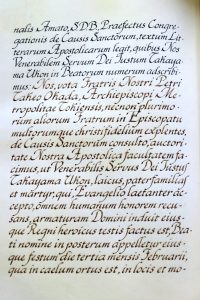 nalis Amato, S.D.B. Praefectus Congre-
gationis de Causis Sanctorum, textum Lit-
terarum Apostolicarum legit, quibus Nos
Venerabilem Servum Dei Iustum Takaya-
ma Ukon in Beatorum numerum adscribi-
mus: Nos, vota Fratris Nostri Leonis
Taheo Okada, Archiepiscopi Me-
tropolitae Tokiensis, necnon plurimo-
rum aliorum Fratrum in Episcopatu
multorumque christifidelium explentes,
de Causis Sanctorum consulto, auctori-
tate Nostra Apostolica facultatem fa-
cimus, ut Venerabilis Servus Dei Iustus
Takayama Ukon, laicus, paterfamilias
et martyr, qui, Evangelio laetanter ac-
cepto, omnem humanum honorem recu-
sans, armaturam Domini induit eius-
que Regni heroicus testis factus est, Bea-
ti nomine in posterum appelletur eius-
que festum die tertia mensis Februarii,
qua in caelum ortus est, in locis et mo-